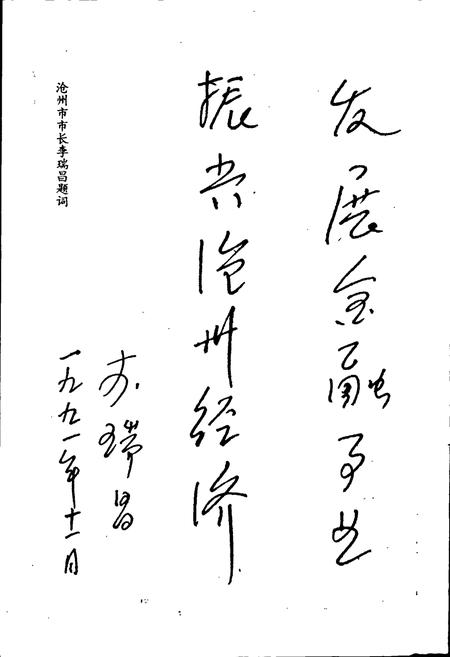 发展金融事业
振兴沧州经济
李瑞昌
一九九一年十一月
沧州市市长李瑞昌题词